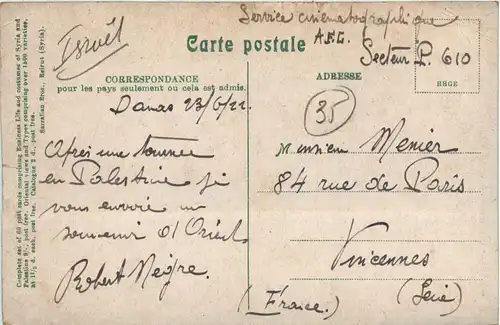 Service cinematographique
A.F.L.
Secteur P. 610
Israël
Carte postale
RBGE
CORRESPONDANCE
pour les pays seulement ou cela est admis.
ADRESSE
35
Damas 23/6/22.
Après une tournée
en Palestine je
vous envoie un
souvenir d'Orient
Robert Nègre.
Monsieur Menier
84 rue de Paris
Vincennes
(France.) (Seine)
Complete set of 60 post cards comprising Business Life and costumes of Syria and
Palestine 5/. post free. Oriental views and Types comprising over 1500 varieties,
at 1 1/2 d. each, post free. Catalogue 2 d., post free.
Sarrafian Bros., Beirut (Syria).